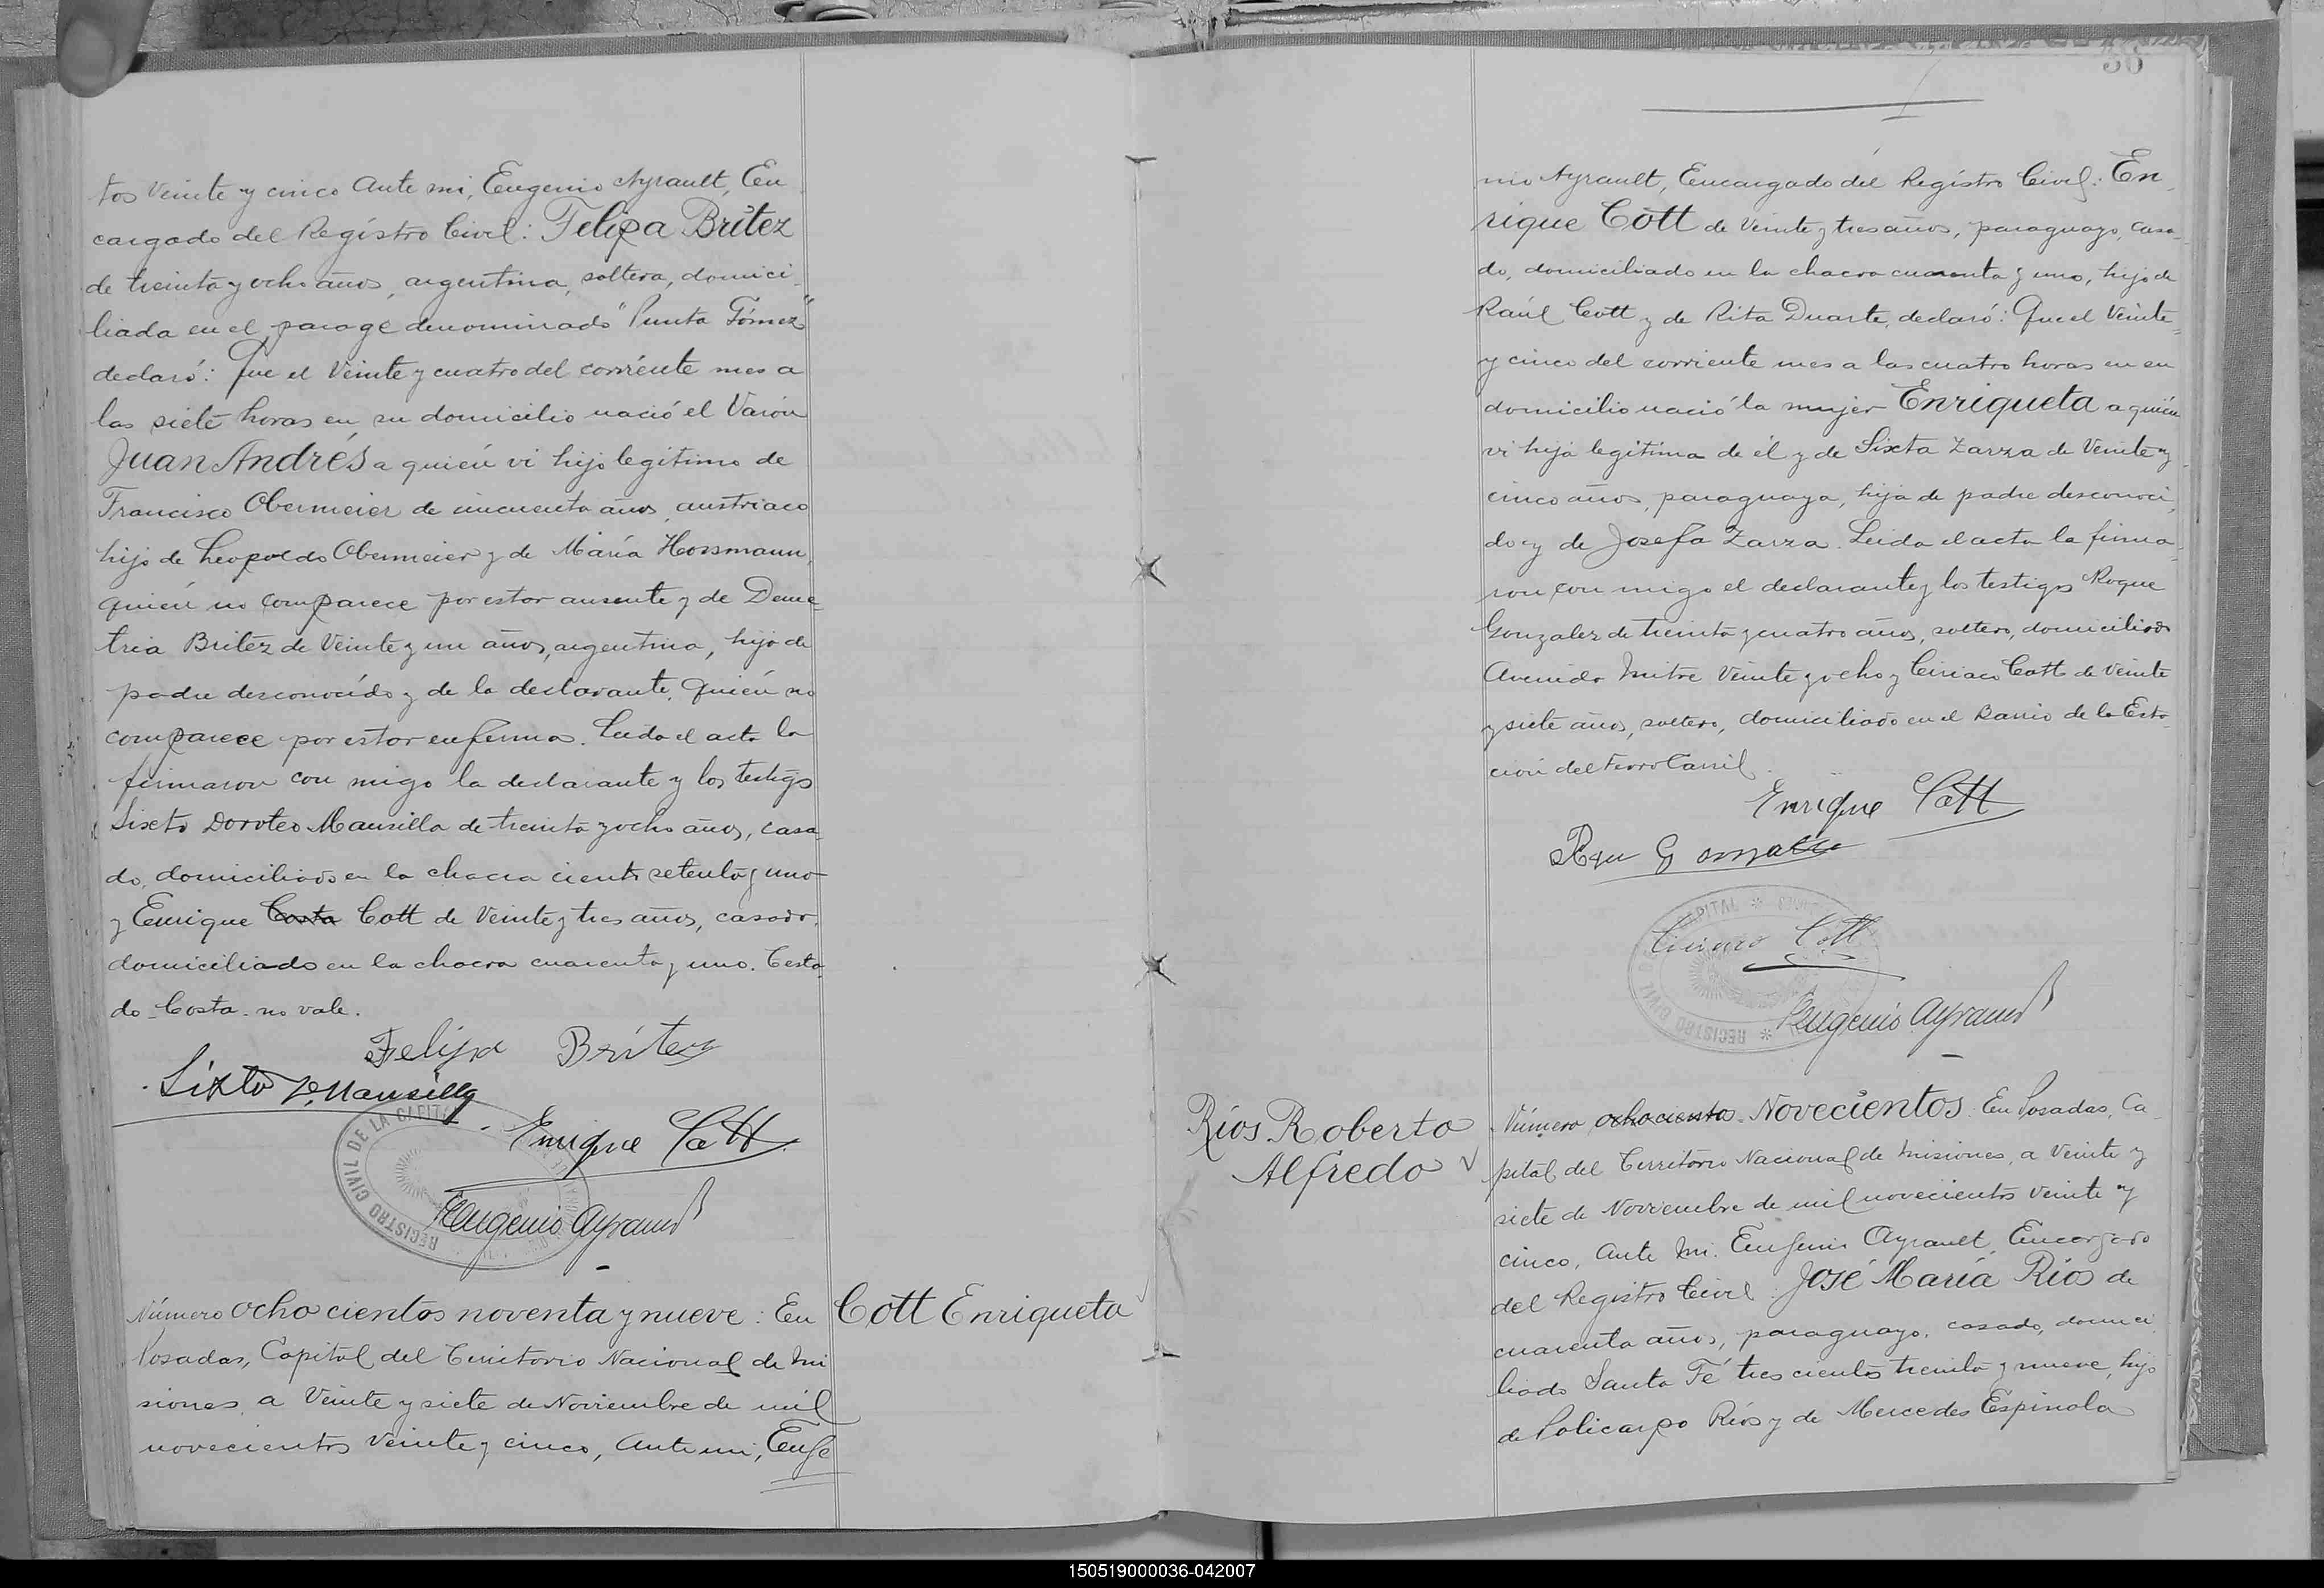 tos Veinte y cinco Ante mi, Eugenio Ayrault, En
cargado del Registro Civil: Felipa Britez
de treinta y ocho años, argentina, soltera, domici
liada en el parage denominado "Punta Gómez"
declaró: Que el Veinte y cuatro del corriente mes a
las siete horas en su domicilio nació el Varón
Juan Andrés a quién vi hijo legitimo de
Francisco Obermeier de cincuenta años, austriaco
hijo de Leopoldo Obermeier y de María Hossmann,
quién no comparece por estar ausente y de Deme
tria Britez de Veinte y un años, argentina, hija de
padre desconocído y de la declarante, quién no
comparece por estar enferma. Leida el acta la
firmaron con migo la declarante y los testigos
Sixto Doroteo Mansilla de treinta y ocho años, casa
do, domiciliado en la chacra ciento setenta y uno
y Enrique Costa Cott de Veinte y tres años, casado,
domiciliado en la chacra cuarenta y uno. Testa
do - Costa - no vale.
Felipa Britez
Sixto D. Mansilla
Enrique Cott
REGISTRO CIVIL DE LA CAPITAL
Eugenio Ayrault
Número ocho cientos noventa y nueve: En
Posadas, Capital del Territorio Nacional de Mi
siones, a Veinte y siete de Noviembre de mil
novecientos Veinte y cinco, Ante mi, Euge
Cott Enriqueta
36
nio Ayrault, Encargado del Registro Civil: En
rique Cott de Veinte y tres años, paraguayo, casa
do, domiciliado en la chacra cuarenta y uno, hijo de
Raúl Cott y de Rita Duarte, declaró: Que el Veinte
y cinco del corriente mes a las cuatro horas en su
domicilio nació la mujer Enriqueta a quién
vi hija legitima de él y de Sixta Zarza de Veinte y
cinco años, paraguaya, hija de padre desconoci
do y de Josefa Zarza. Leida el acta la firma
ron con migo el declarante y los testigos Roque
Gonzalez de treinta y cuatro años, soltero, domiciliado
Avenida Mitre Veinte y ocho y Ciriaco Cott de Veinte
y siete años, soltero, domiciliado en el Barrio de la Esta
ción del Ferro Carril.
Enrique Cott
Gonzalez
Ciriaco Cott
REGISTRO CIVIL DE CAPITAL
Eugenio Ayrault
Ríos Roberto
Alfredo
Número ochocientos - Novecientos. En Posadas, Ca
pital del Territorio Nacional de Misiones, a Veinte y
siete de Noviembre de mil novecientos veinte y
cinco, Ante Mi. Eugenio Ayrault, Encargado
del Registro Civil: José María Ríos de
cuarenta años, paraguayo, casado, domici
liado Santa Fé tres cientos treinta y nueve, hijo
de Policarpo Ríos y de Mercedes Espinola
150519000036-042007